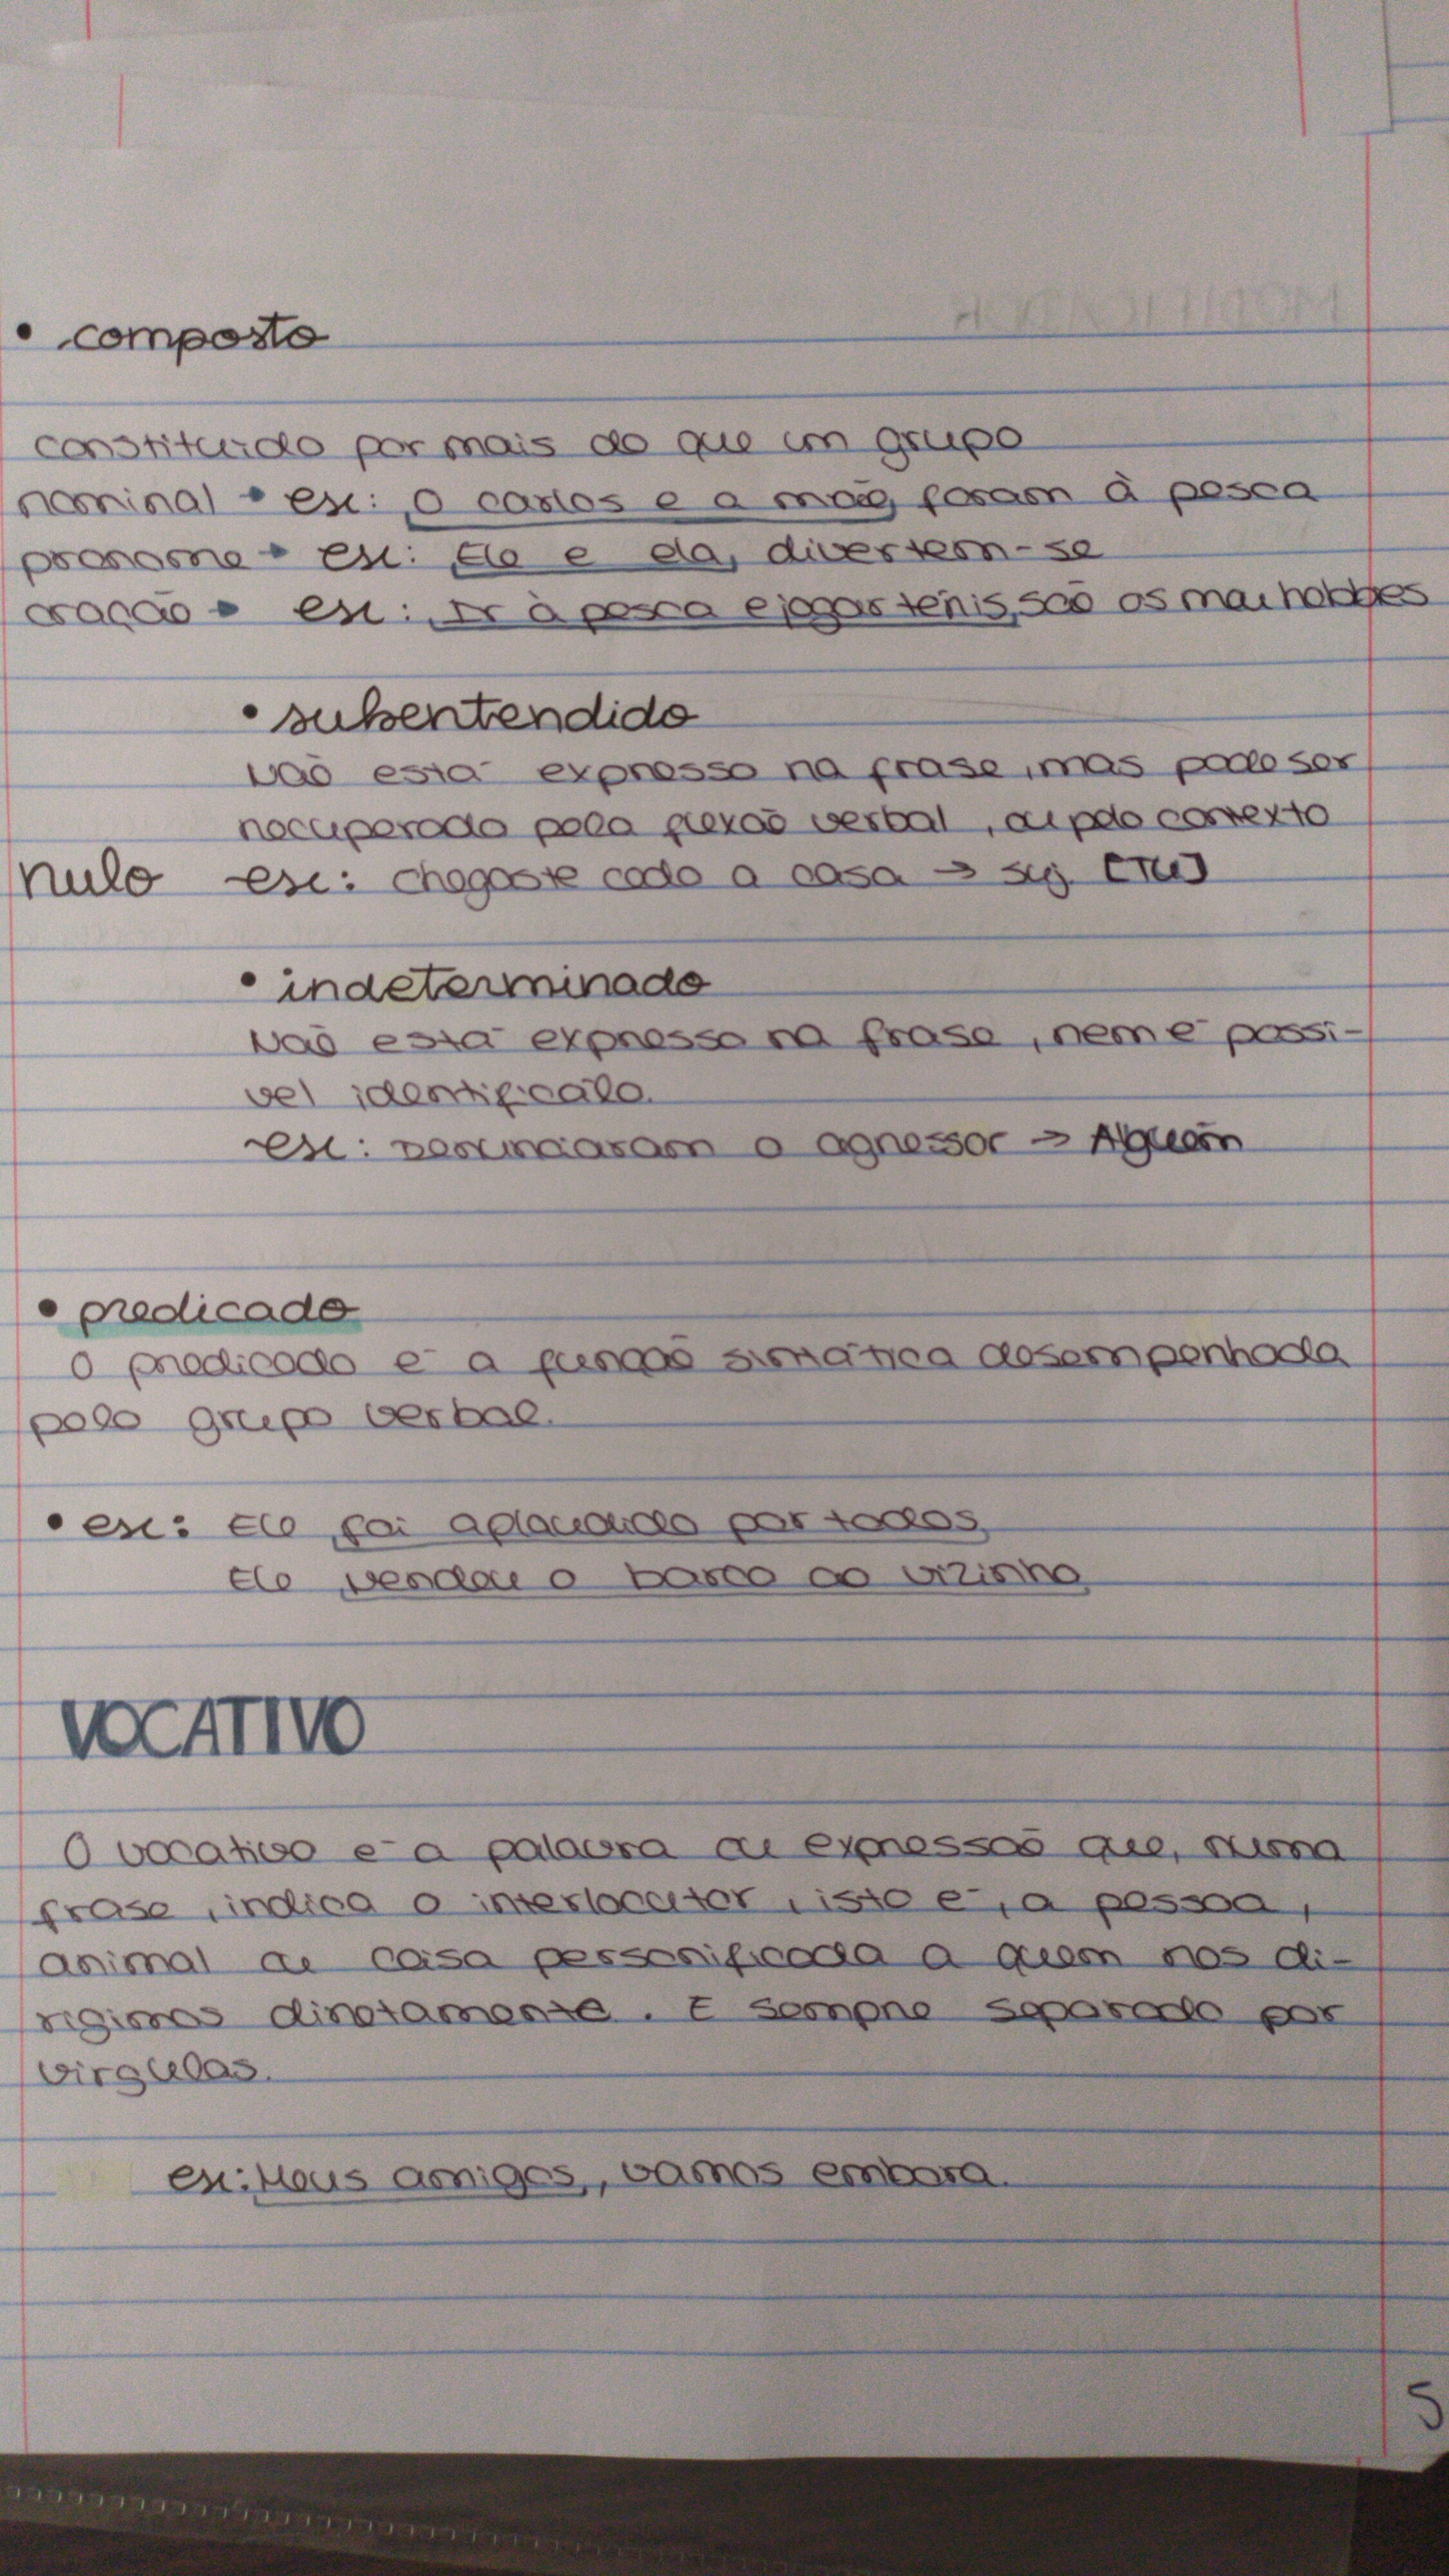 • composto
constituido por mais do que um grupo
nominal • ex: o carlos e a mae, foram à pesca
pronome • ex: Ele e ela, divertem-se
oração • ex: Ir à pesca e jogar tenis, são os mai hobbies
• subentendido
Não está expresso na frase, mas pode ser
recuperado pela flexão verbal, ou pelo contexto
nulo ex: chegaste cedo a casa → suj. [Tu]
• indeterminado
Não está expresso na frase, nem é possi-
vel identificálo.
ex: o agressor → Alguém
• predicado
O predicado é a função sintática desempenhada
pelo grupo verbal.
• ex: Ele foi aplaudido por todos
Ele vendeu o barco ao vizinho
VOCATIVO
O vocativo é a palavra ou expressão que, numa
frase, indica o interlocutor, isto é, a pessoa,
animal ou coisa personificada a quem nos di-
rigimos diretamente. É sempre separado por
virgulas.
ex: Meus amigos, vamos embora.
5